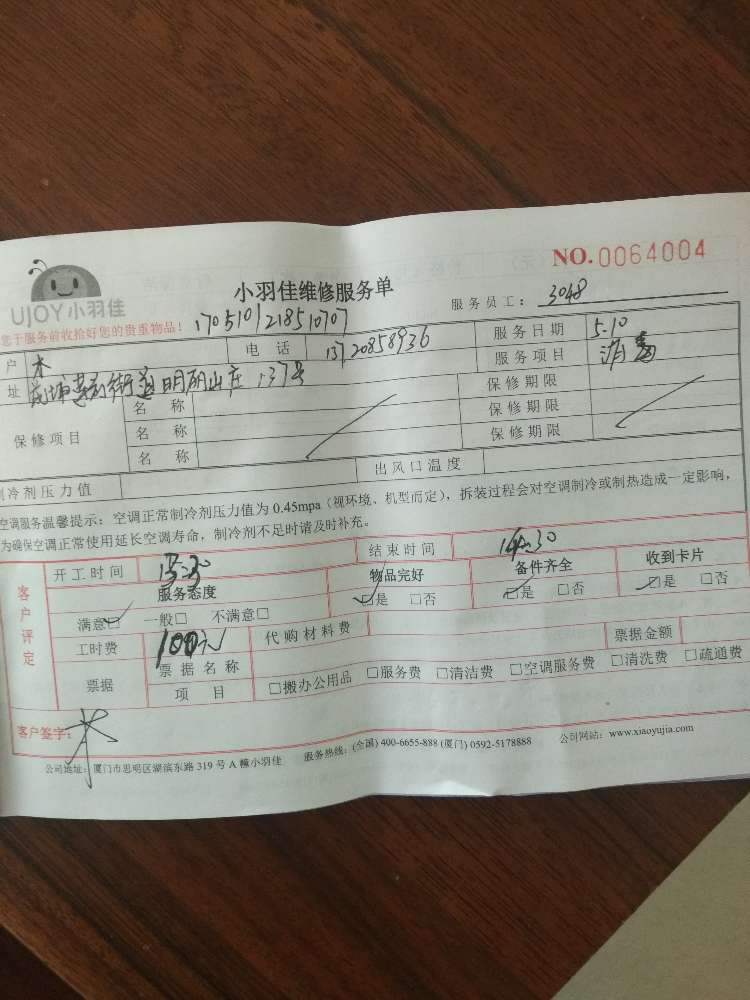 NO.0064004
UJOY小羽佳
小羽佳维修服务单
服务员工: 3048
您于服务前收拾好您的贵重物品! 1705101218510707
户 木 电 话 13720858936 服务日期 5.10
址 明山庄 137号 服务项目
保修项目 名 称 保修期限
名 称 保修期限
名 称 保修期限
制冷剂压力值 出风口温度
空调服务温馨提示:空调正常制冷剂压力值为 0.45mpa(视环境、机型而定),拆装过程会对空调制冷或制热造成一定影响,
为确保空调正常使用延长空调寿命,制冷剂不足时请及时补充。
客户评定
开工时间 13:30 结束时间 14:30
服务态度 物品完好 备件齐全 收到卡片
满意□ 一般□ 不满意□ □是 □否 □是 □否 □是 □否
工时费 100元 代购材料费 票据金额
票据 票据名称
项 目 □搬办公用品 □服务费 □清洁费 □空调服务费 □清洗费 □疏通费
客户签字: 木
公司地址:厦门市思明区湖滨东路 319 号 A 幢小羽佳 服务热线:(全国) 400-6655-888 (厦门) 0592-5178888 公司网站:www.xiaoyujia.com